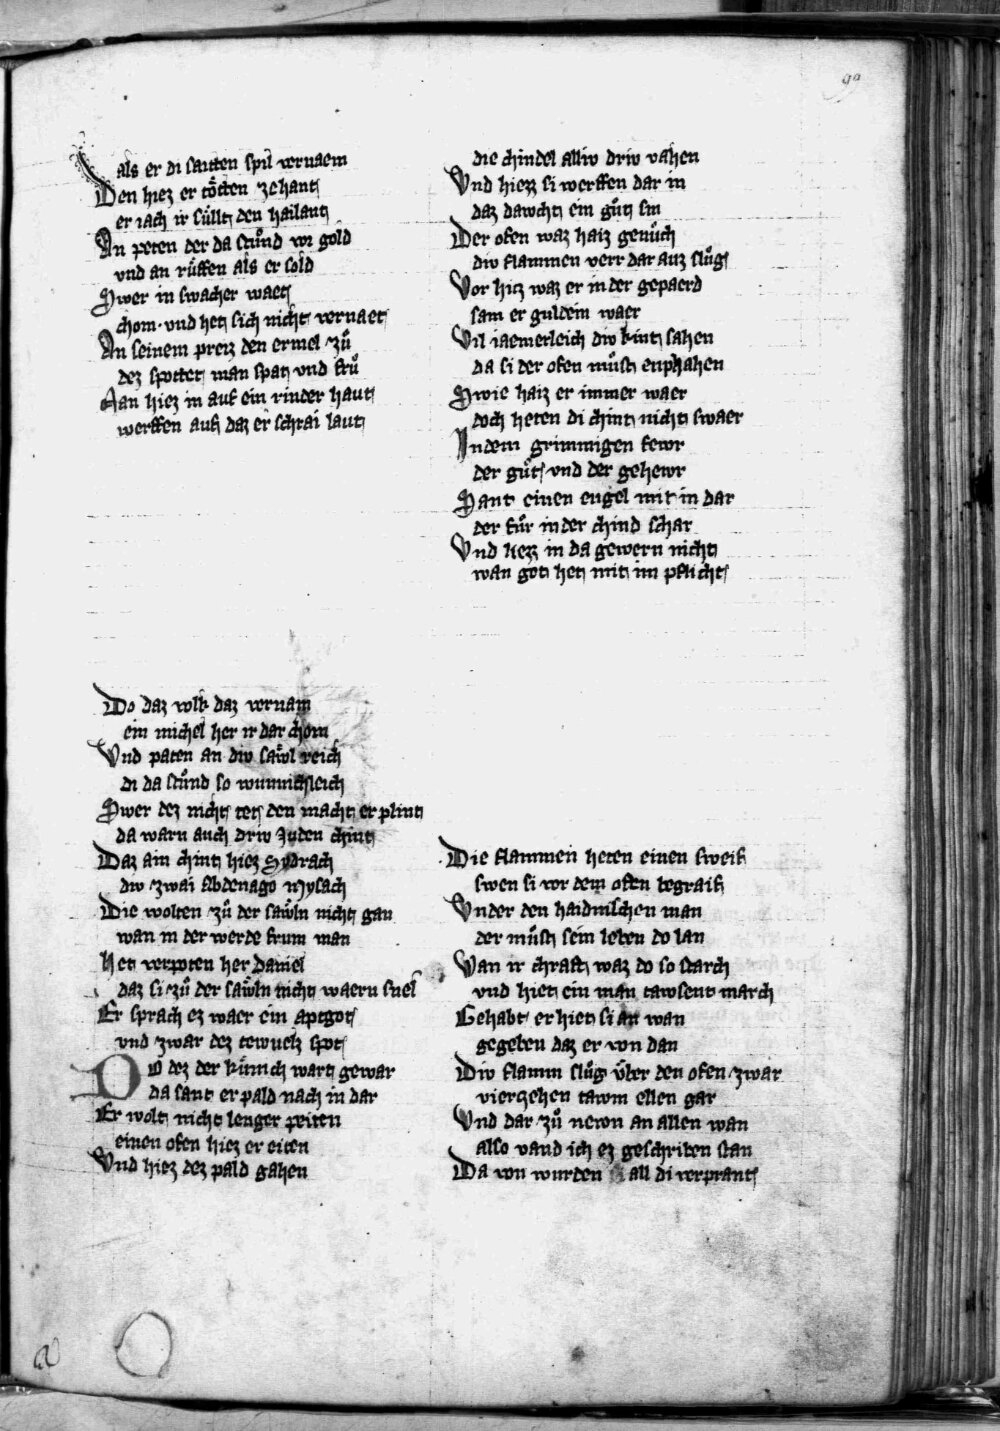 99
als er di saitten spil vernaem
Den hiez er toͤtten zehant
er iach ir suͤllt den hailant
An peten der da stuͦnd von gold
vnd an ruͤffen als er sold
Swer in swacher waet
chom vnd het sich nicht vernaet
An seinem preiz den ermel zuͦ
dez spottet man spat vnd fruͦ
Man hiez in auf ein rinder haut
werffen auf daz er schrai laut
Do daz volk daz vernam
ein michel her ir dar chom
Vnd paten an div saͤwl reich
di da stuͦnd so wunnichleich
Swer dez nicht tet den macht er plint
da warn auch driv Juden chint
Daz ain chint hiez Sydrach
div zwai Abdenago Mysach
Die wolten zuͦ der saͤwln nicht gan
wan in der werde frum man
Het verpoten her Daniel
daz si zuͦ der saͤwln nicht waern snel
Er sprach ez waer ein aptgot
vnd zwar dez tewuels spot
DO dez der kuͤnich wart gewar
da sant er pald nach in dar
Er wolt nicht lenger peiten
einen ofen hiez er eiten
Vnd hiez dez pald gahen
die chindel alliv driv vahen
Vnd hiez si werffen dar in
daz dawcht ein guͦt sin
Der ofen waz haiz genuͦch
div flammen verr dar auz sluͦg
Vor hitz waz er in der gepaerd
sam er guldein waer
Vil iaemerleich div kint sahen
da si der ofen muͦst enphahen
Swie haiz er immer waer
doch heten di chint nicht swaer
In dem grimmigen fewr
der guͦt vnd der gehewr
Sant einen engel mit in dar
der fuͦr in der chind schar
Vnd liezz in da gewern nicht
wan got het mit im pflicht
Die flammen heten einen sweif
swen si vor dem ofen begraif
Vnder den haidnischen man
der muͦst sein leben do lan
Wan ir chraft waz do so starch
vnd hiet ein man tawsent march
Gehabt er hiet si an wan
gegeben daz er von dan
Div flamm sluͦg vͤber den ofen zwar
vierzehen tawm ellen gar
Vnd dar zuͦ newn an allen wan
also vand ich ez geschriben stan
Da von wurden all di verprant